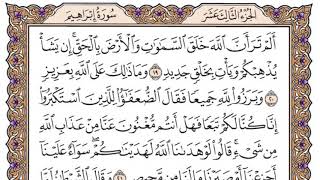 الجزء الثالث عشر
سورة إبراهيم
أَلَمْ تَرَ أَنَّ ٱللَّهَ خَلَقَ ٱلسَّمَٰوَٰتِ وَٱلْأَرْضَ بِٱلْحَقِّ إِن يَشَأْ
يُذْهِبْكُمْ وَيَأْتِ بِخَلْقٍ جَدِيدٍ ١٩ وَمَا ذَٰلِكَ عَلَى ٱللَّهِ بِعَزِيزٍ
٢٠ وَبَرَزُوا۟ لِلَّهِ جَمِيعًا فَقَالَ ٱلضُّعَفَٰٓؤُا۟ لِلَّذِينَ ٱسْتَكْبَرُوٓا۟
إِنَّا كُنَّا لَكُمْ تَبَعًا فَهَلْ أَنتُم مُّغْنُونَ عَنَّا مِنْ عَذَابِ ٱللَّهِ
مِن شَىْءٍ قَالُوا۟ لَوْ هَدَىٰنَا ٱللَّهُ لَهَدَيْنَٰكُمْ سَوَآءٌ عَلَيْنَآ
أَجَزِعْنَآ أَمْ صَبَرْنَا مَا لَنَا مِن مَّحِيصٍ ٢١ وَقَالَ ٱلشَّيْطَٰنُ لَمَّا